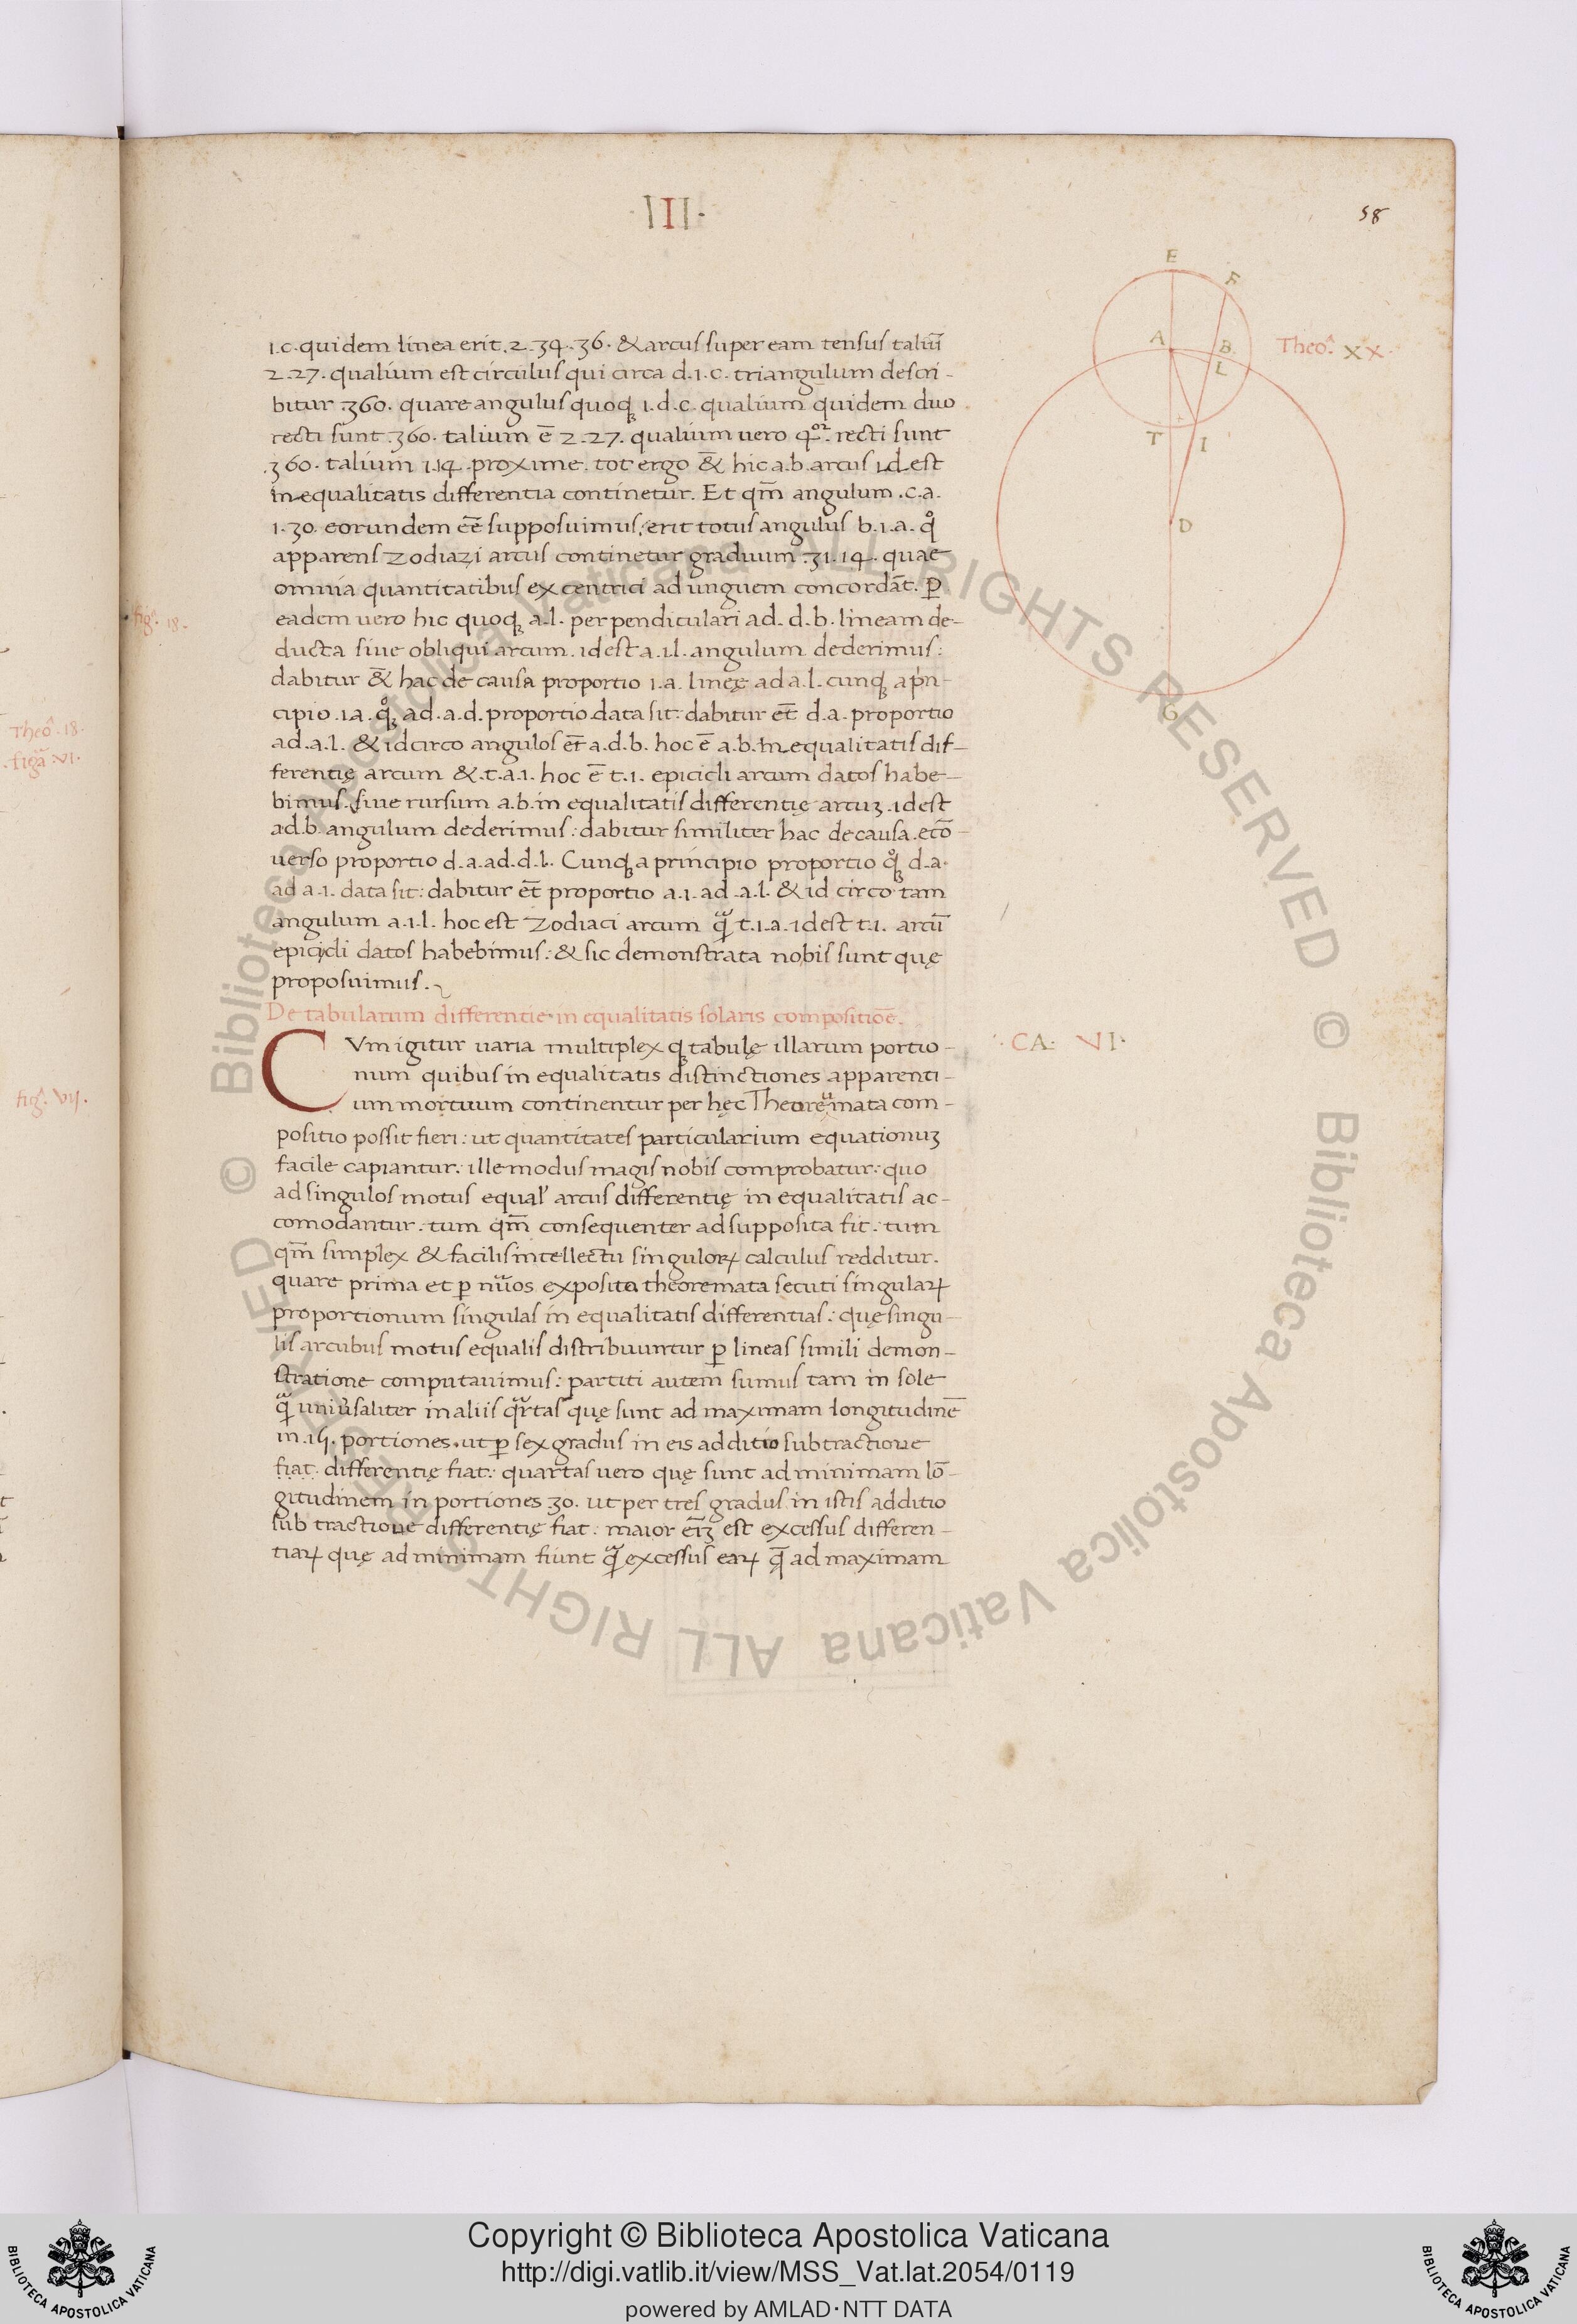 ·III·
58
E
F
A
B
L
T
I
D
G
Theoᵃ. XX.
ı.c. quidem linea erit. 2.34.36. & arcus super eam tensus taliū
2.27. qualium est circulus qui circa d.ı.c. triangulum descri-
bitur .360. quare angulus quoqꝫ ı.d.c. qualium quidem duo
recti sunt .360. talium ē 2.27. qualium uero qͦꝛ. recti sunt
.360. talium 1.14. proxime. tot ergo & hic a.b. arcus ıd est
in equalitatis differentia continetur. Et qm̄ angulum .c.a.
1.30. eorundem eē supposuimus: erit totus angulus b.ı.a. qͦ
apparens zodiazi arcus continetur graduum .31.14. quae
omnia quantitatibus excentrici ad unguem concordāt. ꝑ
eadem uero hic quoqꝫ a.l. perpendiculari ad. d.b. lineam de-
ducta siue obliqui arcum. ıdest a.ıl. angulum dederimus:
dabitur & hac de causa proportio ı.a. lineę ad a.l. cunqꝫ apri-
cipio .ı.a. qͦꝫ ad .a.d. proportio data sit: dabitur eт̄ d.a. proportio
ad .a.l. & idcirco angulos eт̄ a.d.b. hoc ē a.b. in equalitatis dif-
ferentię arcum & .t.a.ı. hoc ē t.ı. epicicli arcum datos habe-
bimus. siue rursum a.b. in equalitatis differentię arcuꝫ .ıdest
ad.b. angulum dederimus: dabitur similiter hac de causa .ecō-
uerso proportio d.a. ad. d.l. Cunqꝫ a principio proportio qͦꝫ d.a.
ad a.ı. data sit: dabitur eт̄ proportio a.ı. ad .a.l. & id circo tam
angulum a.ı.l. hoc est zodiaci arcum qᷓ t.ı.a. ıdest t.ı. arcū
epicicli datos habebimus: & sic demonstrata nobis sunt quę
proposuimus.
De tabularum differentie in equalitatis solaris compositiōe.
·CA: VI·
CVm igitur uaria multiplex qꝫ tabulę illarum portio-
num quibus in equalitatis distinctiones apparenti-
um mortuum continentur per hęc Theoremata com-
positio possit fieri: ut quantitates particularium equationuꝫ
facile capiantur: ille modus magis nobis comprobatur: quo
ad singulos motus equal' arcus differentię in equalitatis ac-
comodantur: tum qm̄ consequenter ad supposita fit: tum
qm̄ simplex & facilis intellectu singuloꝝ calculus redditur.
quare prima et ꝑ nūos exposita theoremata secuti singulaꝝ
proportionum singulas in equalitatis differentias: quę singu-
lis arcubus motus equalis distribuuntur ꝑ lineas simili demon-
stratione computauimus: partiti autem sumus tam in sole
qᷓ uniùsaliter in aliis qᷓrtas quę sunt ad maximam longitudinē
in .15. portiones. ut ꝑ sex gradus in eis additio subtractione
fiat. differentię fiat: quartas uero quę sunt ad minimam lō-
gitudinem in portiones 30. ut per tres gradus in istis additio
sub tractione differentię fiat: maior eīꝫ est excessus differen-
tiaꝝ quę ad minimam fiunt qᷓ excessus eaꝝ q̄ ad maximam
figᵃ. 18.
Theoᵃ. 18.
figᵃ. VI.
figᵃ. VII.
© Biblioteca Apostolica Vaticana ALL RIGHTS RESERVED
© Biblioteca Apostolica Vaticana ALL RIGHTS RESERVED
Copyright © Biblioteca Apostolica Vaticana
http://digi.vatlib.it/view/MSS_Vat.lat.2054/0119
powered by AMLAD·NTT DATA
BIBLIOTECA APOSTOLICA VATICANA
BIBLIOTECA APOSTOLICA VATICANA